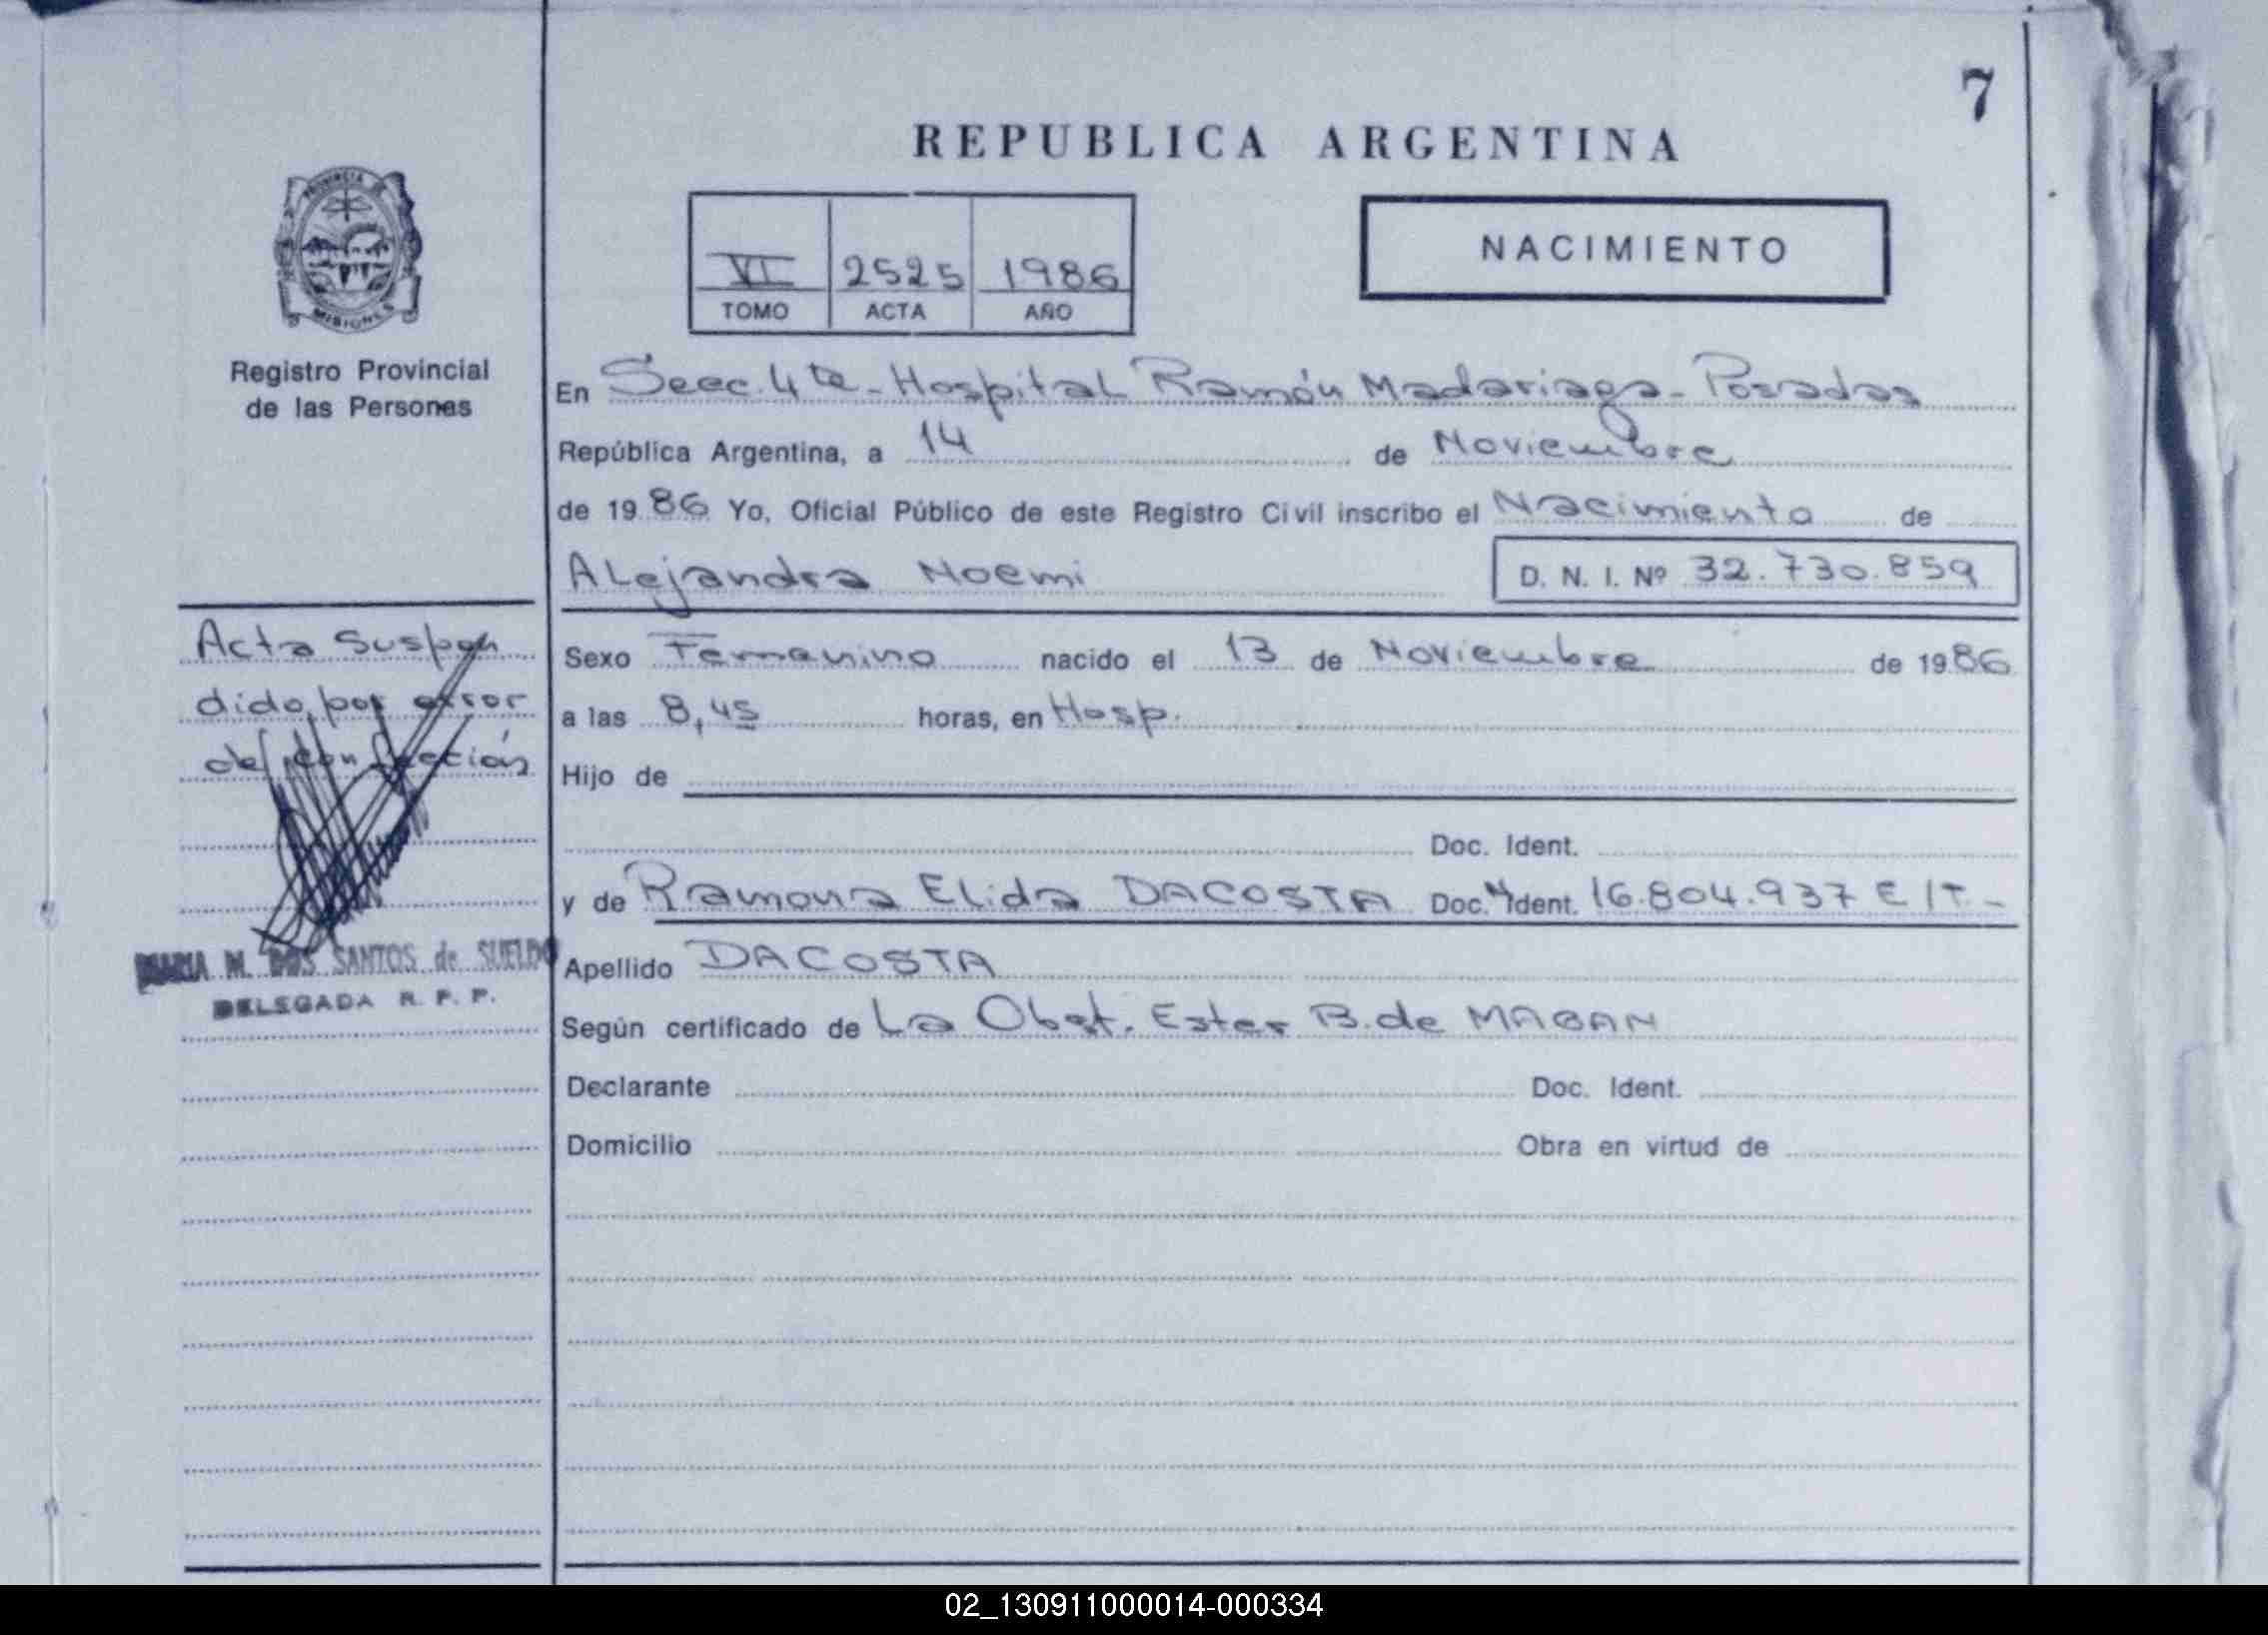 7
REPUBLICA ARGENTINA
PROVINCIA DE
MISIONES
Registro Provincial
de las Personas
VI 2525 1986
TOMO ACTA AÑO
NACIMIENTO
En Secc. 4ta - Hospital Ramón Madariaga - Posadas
República Argentina, a 14 de Noviembre
de 1986 Yo, Oficial Público de este Registro Civil inscribo el Nacimiento de
Alejandra Noemi D. N. I. Nº 32.730.859
Sexo Femenino nacido el 13 de Noviembre de 1986
a las 8,45 horas, en Hosp.
Hijo de
Doc. Ident.
y de Ramona Elida DACOSTA Doc. Ident. 16.804.937 E/T.-
Apellido DACOSTA
Según certificado de La Obst. Ester B. de MABAN
Declarante Doc. Ident.
Domicilio Obra en virtud de
Acta Suspen
dido, por error
de confección
MARIA M. DOS SANTOS de SUELDO
DELEGADA R. P. P.
02_130911000014-000334